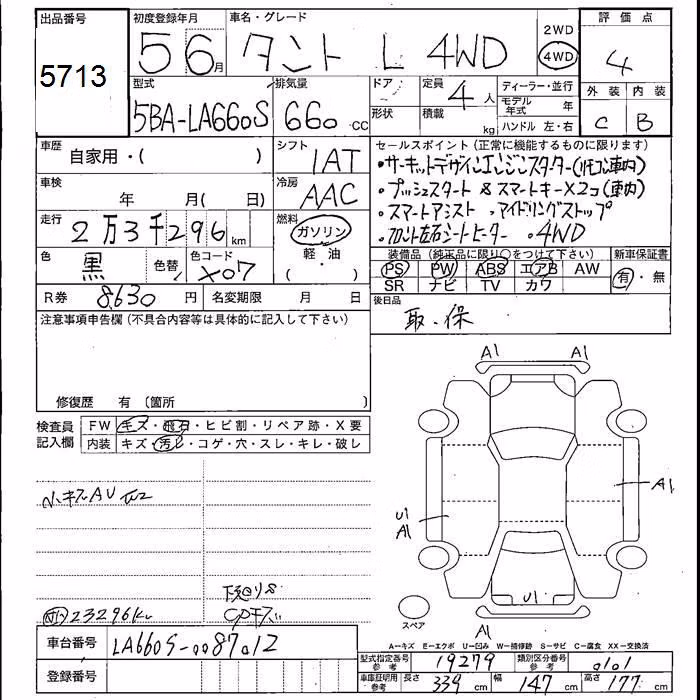 出品番号 初度登録年月 車名・グレード 評価点
5713 5 6月 タント L 4WD 2WD 4WD 4
型式 排気量 ドア 定員 4人 ディーラー・並行 外装 内装
5BA-LA660S 660 CC 形状 積載 kg モデル年式 年 C B
ハンドル 左・右
車歴 自家用・( ) シフト 1AT セールスポイント(正常に機能するものに限ります)
・サーキットデザインエンジンスターター(リモコン車内)
車検 年 月( 日) 冷房 AAC ・プッシュスタート & スマートキー×2コ(車内)
・スマートアシスト ・アイドリングストップ
走行 2万3千296km 燃料 ガソリン ・フロント左右シートヒーター ・4WD
軽・油 ( )
色 黒 色替 色コード X07 装備品(純正品に限り○をつけて下さい) 新車保証書
PS PW ABS エアB AW 有・無
SR ナビ TV カワ
R券 8,630円 名変期限 月 日 後日品
取・保
注意事項申告欄(不具合内容等は具体的に記入して下さい)
修復歴 有(箇所 )
検査員記入欄 FW キズ・飛石・ヒビ割・リペア跡・X要
内装 キズ・汚レ・コゲ・穴・スレ・キレ・破し
A1 A1
小キズAU
A1
U1
A1
下廻りS
23296km
U1
スペア
A1
車台番号 LA660S-0087012
A-キズ E-エクボ U-凹み W-補修跡 S-サビ C-腐食 XX-交換済
登録番号
型式指定番号 参考 19279 類別区分番号 参考 0101
車庫証明用 参考 長さ 339cm 幅 147cm 高さ 177cm